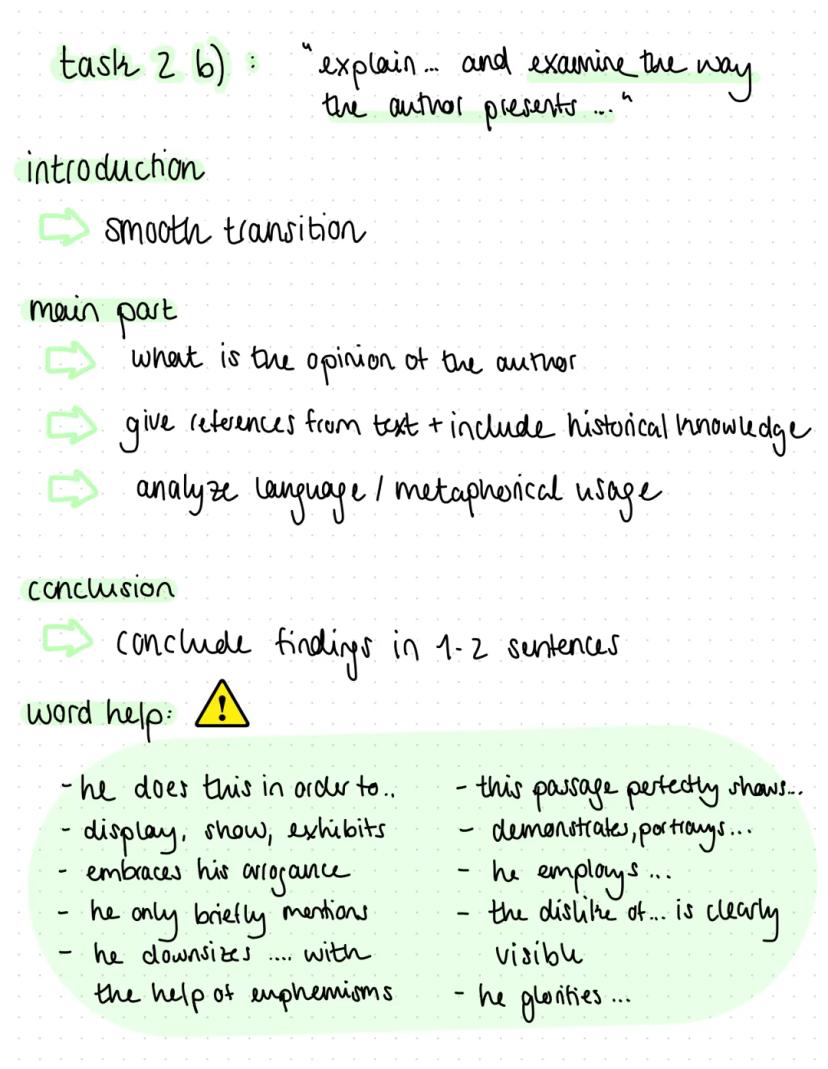 task 2 b) : "explain... and examine the way
the author presents ..."
introduction
smooth transition
main part
what is the opinion of the author
give references from text + include historical knowledge
analyze language / metaphorical usage
conclusion
conclude findings in 1-2 sentences
word help:
- he does this in order to..
- display, show, exhibits
- embraces his arrogance
- he only briefly mentions
- he downsizes .... with
the help of euphemisms
- this passage perfectly shows...
- demonstrates, portrays...
- he employs ...
- the dislike of... is clearly
visible
- he glorifies ...